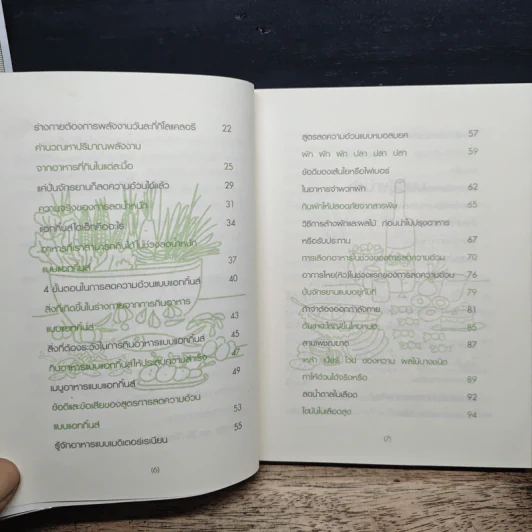 ร่างกายต้องการพลังงานวันละกี่กิโลแคลอรี 22
คำนวณหาปริมาณพลังงาน
จากอาหารที่กินในแต่ละมื้อ 25
แค่ปั่นจักรยานก็ลดความอ้วนได้แล้ว 29
ความจริงของการลดน้ำหนัก 31
แอทกินส์ไดเอ็ทคืออะไร 34
อาหารที่เราสามารถกินได้ในช่วงลดน้ำหนัก
แบบแอทกินส์ 37
4 ขั้นตอนในการลดความอ้วนแบบแอทกิ้นส์ 40
สิ่งที่เกิดขึ้นในร่างกายจากการกินอาหาร
แบบแอทกิ้นส์ 43
สิ่งที่ต้องระวังในการกินอาหารแบบแอทกิ้นส์ 45
กินอาหารแบบแอทกิ้นส์ให้ประสบความสำเร็จ 47
เมนูอาหารแบบแอทกิ้นส์ 49
ข้อดีและข้อเสียของสูตรการลดความอ้วน
แบบแอทกิ้นส์ 53
รู้จักอาหารแบบเมดิเตอร์เรเนียน 55
(6)
สูตรลดความอ้วนแบบหมอสมยศ 57
ผัก ผัก ผัก ปลา ปลา ปลา 59
ข้อดีของเส้นใยหรือไฟเบอร์
ในอาหารจำพวกผัก 62
กินผักให้ปลอดภัยจากสารพิษ 65
วิธีการล้างผักและผลไม้ ก่อนนำไปปรุงอาหาร
หรือรับประทาน 67
การเลือกอาหารในช่วงของการลดความอ้วน 70
อาการโหย(หิว)ในช่วงแรกของการลดความอ้วน 76
ปั่นจักรยานแบบอยู่กับที่ 79
ถ้าจาต้องออกกำลังกาย 81
ต้นขาจะใหญ่ขึ้นไหมหมอ 85
สามพุงกษาด 87
เหล้า เบียร์ ไวน์ ของหวาน ผลไม้บางชนิด
ทำให้อ้วนได้จริงหรือ 89
ลดน้ำตาลในเลือด 92
ไขมันในเลือดสูง 94
(7)